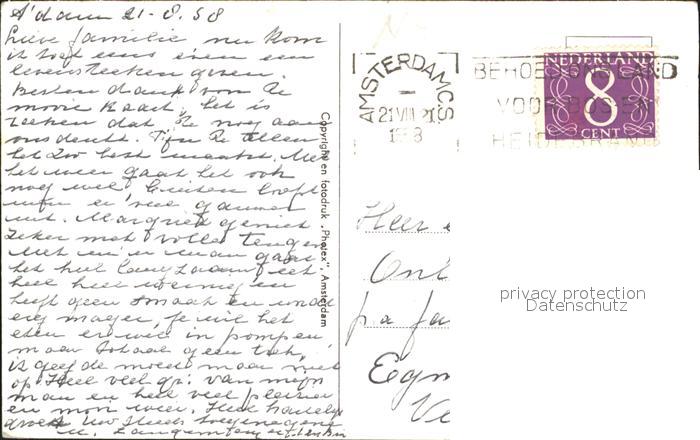 A'dam 21-8.58
Lieve familie nu kom
ik toch eens even een
levensteeken geven.
Besten dank voor de
mooie kaart, het is
teeken dat je nog aan
ons denkt. Fijn de
het zoo best maakt. Met
het weer gaat het ook
nog wel, buiten
men er veel gauwer
uit. Margriet geniet
zeker met volle teugen
Met m'n man gaat
het heel langzaam, eet
heel heel weinig en
heeft geen smaak en wordt
erg mager, je wil het
eten er wel in pompen,
maar totaal geen trek,
ik geef de moed maar niet
op. Heel veel gr. van mijn
man en heel veel plezier
en mooi weer. Heel hartelijk
groet Uw steeds toegenegene
Copyright en fotodruk „Photex", Amsterdam
AMSTERDAM C.S.
21 VIII 21
1958
BEHOED ONS LAND
VOOR BOS EN
HEIDEBRAND
NEDERLAND
8
CENT
Heer
Ont
p/a fa
Egm
privacy protection
Datenschutz